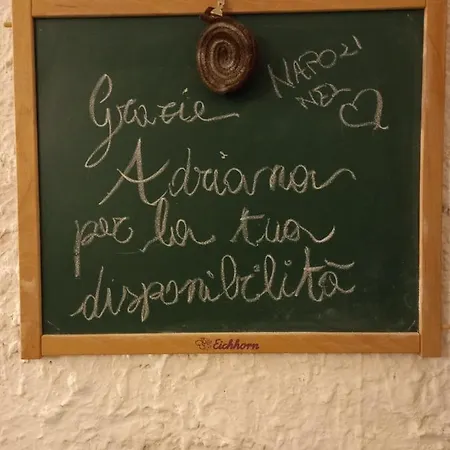 NAPOLI
NEL
Grazie
Adriana
per la tua
disponibilità
Eichhorn